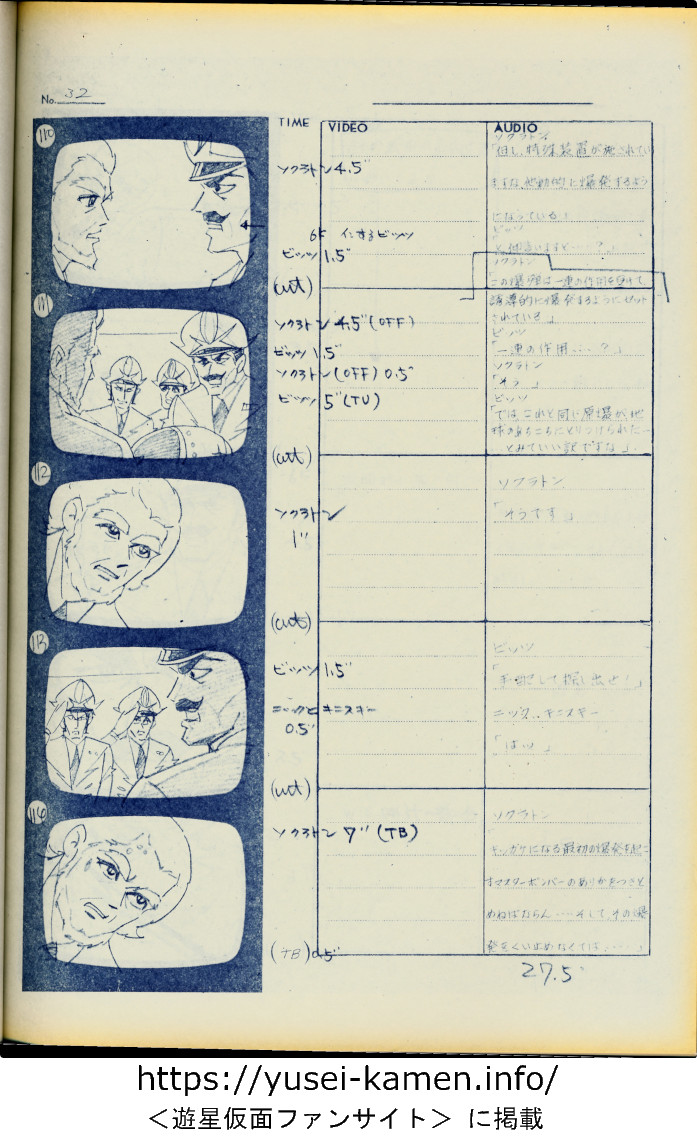 No. 32
TIME VIDEO AUDIO
110
ソクラトン 4.5"
6F インするビッツ
ビッツ 1.5"
(cut)
ソクラトン
「但し、特殊装置が施されてい
ますな、他動的に爆発するよう
になっている」
ビッツ
と、仰言いますと…?」
111
ソクラトン 4.5" (OFF)
ビッツ 1.5"
ソクラトン (OFF) 0.5"
ビッツ 5" (TU)
(cut)
ソクラトン
「この爆弾は一連の作用を受けて
誘導的に爆発するようにセット
されている」
ビッツ
「一連の作用…?」
ソクラトン
「そう」
ビッツ
「では、これと同じ原爆が、地
球のあちこちにとりつけられた…
とみていい訳ですな」
112
ソクラトン
1"
(cut)
ソクラトン
「そうです」
113
ビッツ 1.5"
ニックとキニスキー
0.5"
(cut)
ビッツ
「手配して探し出せ!」
ニック、キニスキー
「はい」
114
ソクラトン 7" (TB)
(TB) 0.5"
ソクラトン
キッカケになる最初の爆発を起こ
すマスターボンバーのありかをつきと
めねばならん…そして、その爆
発をくい止めなくては……」
27.5
https://yusei-kamen.info/
＜遊星仮面ファンサイト＞ に掲載